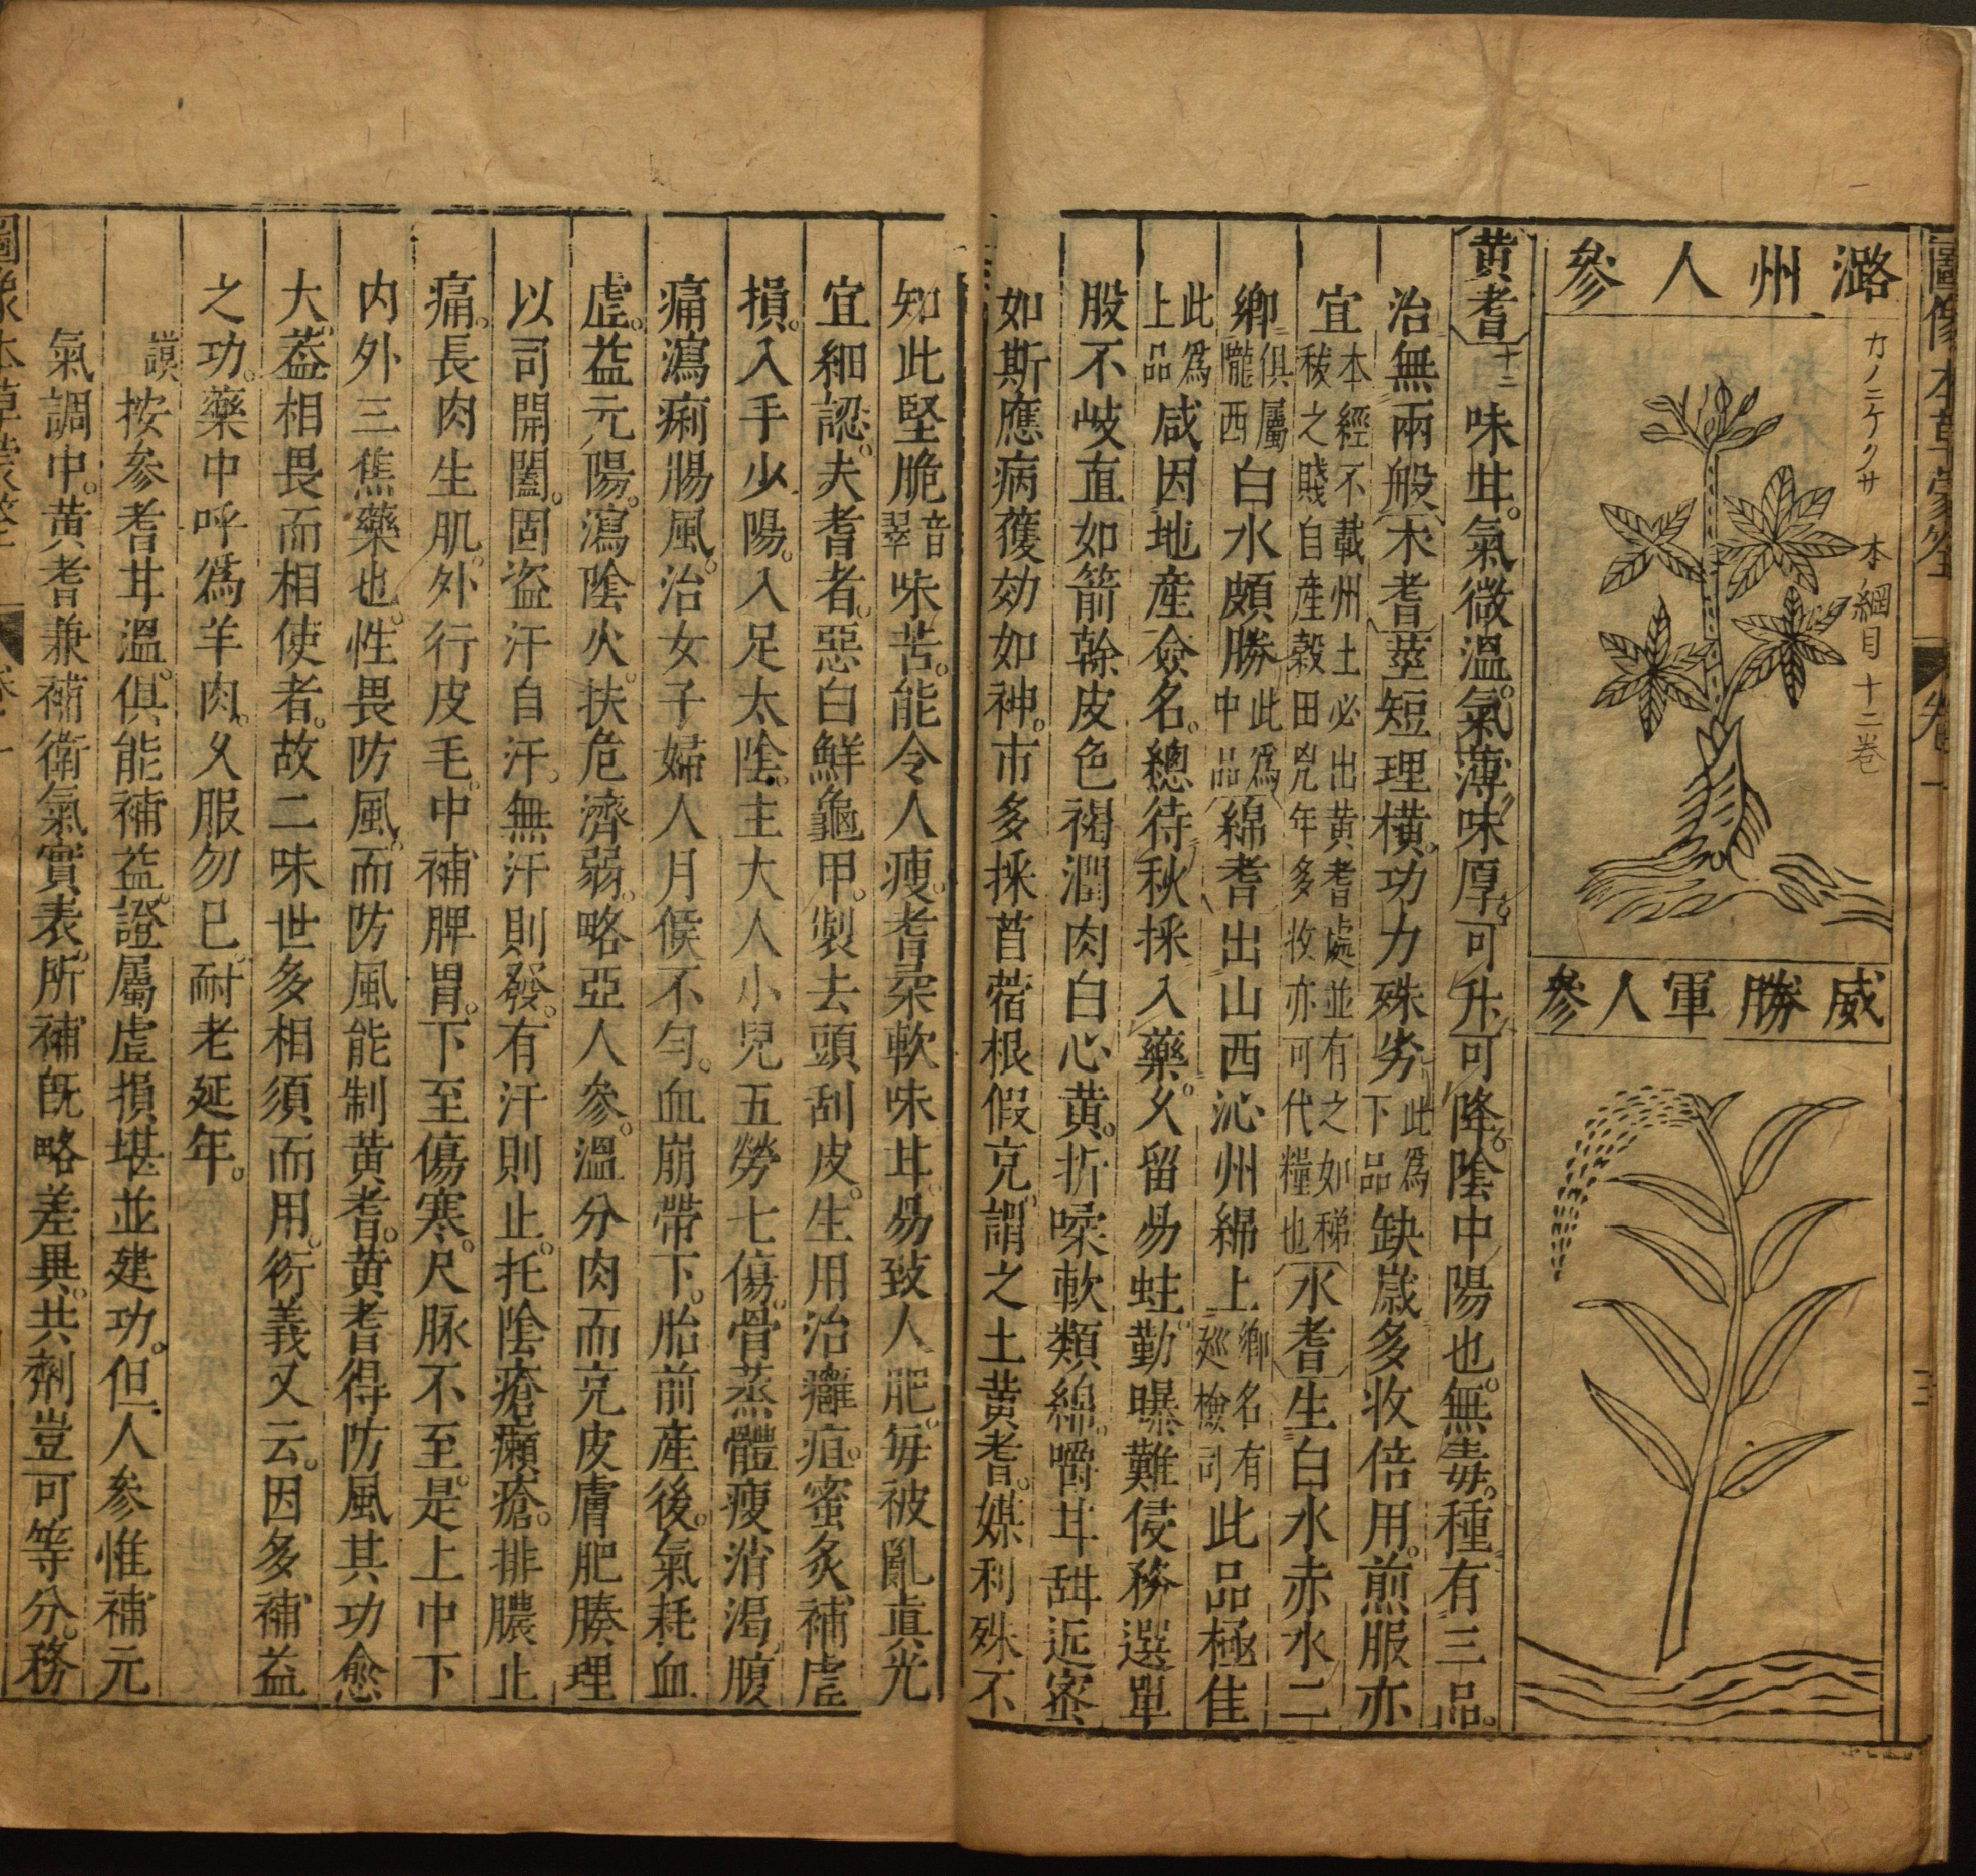 圖像本草蒙筌
卷一
三
潞州人參
カノニケクサ 本綱目十二卷
威勝軍人參
黃耆 十二 味甘。氣微溫。氣薄味厚。可升可降。陰中陽也。無毒。種有三品。
治無兩般。木耆莖短理橫。功力殊劣。此爲下品缺歲多收倍用。煎服亦
宜本經不載州土必出黃耆處並有之如稊稗之賤自産穀田兇年多收亦可代糧也水耆生白水赤水二
鄉俱屬隴西白水頗勝此爲中品綿耆出山西沁州綿上鄉名有廵檢司此品極佳
此爲上品咸因地産僉名。總待秋採入藥。久留易蛀。勤曝難侵務選單
股不岐直如箭簳皮色褐潤肉白心黃。折柔軟類綿。嚼甘甜近蜜
如斯應病獲効如神。市多採苜蓿根假充謂之土黃耆。媒利殊不
知此堅脆音翠味苦。能令人瘦。耆柔軟味甘。易致人肥。每被亂眞尤
宜細認。夫耆者。惡白鮮龜甲。製去頭刮皮。生用治癰疽。蜜炙補虛
損。入手少陽。入足太陰。主大人小兒五勞七傷。骨蒸體瘦消渴腹
痛瀉痢腸風。治女子婦人月候不勻。血崩帶下。胎前産後。氣耗血
虛。益元陽。瀉陰火。扶危濟弱。略亞人參。溫分肉而充皮膚肥腠理
以司開闔。固盜汗自汗。無汗則發。有汗則止。托陰瘡癩瘡。排膿止
痛。長肉生肌。外行皮毛。中補脾胃。下至傷寒。尺脉不至。是上中下
内外三焦藥也。性畏防風。而防風能制黃耆。黃耆得防風其功愈
大。葢相畏而相使者。故二味世多相須而用。衍義又云。因多補益
之功。藥中呼爲羊肉。久服勿已。耐老延年。
謨按參耆甘溫。俱能補益。證屬虛損堪並建功。但人參惟補元
氣調中。黃耆兼補衛氣實表。所補旣略差異。共劑豈可等分。務
圖像本草蒙筌